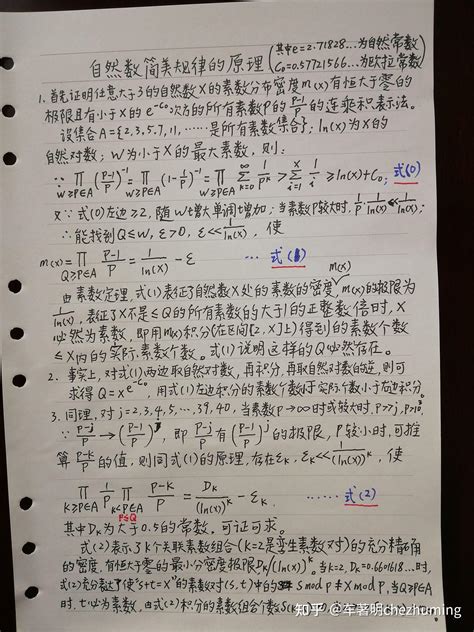 自然数简美规律的原理(其中e=2.71828...为自然常数
C₀=0.57721566...为欧拉常数)
1. 首先证明任意大于3的自然数X的素数分布密度m(x)有恒大于零的
极限且有小于X的e^-C₀次方的所有素数P的(P-1)/P的连乘积表示法。
设集合A={2,3,5,7,11,……是所有素数集合}; ln(x)为X的
自然对数; W为小于X的最大素数, 则:
∵ ∏(W≥P∈A) ((P-1)/P)^-1 = ∏(W≥P∈A) (1-1/P)^-1 = ∏(W≥P∈A) ∑(k=0,∞) 1/P^k > ∑(i=1,X) 1/i ≥ ln(x)+C₀; 式(0)
又∵式(0)左边≥2, 随W增大单调增加; 当素数P较大时, 1/P·1/ln(x) ≪ 1/ln(x);
∴能找到Q≤W, ε>0, ε≪1/ln(x), 使
m(x)=∏(Q≥P∈A) (P-1)/P = 1/ln(x) - ε ··· 式(1)
由素数定理, 式(1)表征了自然数X处的素数的密度, m(x)的极限为
1/ln(x), 表征了X不是≤Q的所有素数的大于1的正整数倍时, X
必然为素数, 即用m(x)积分(在区间[2,X]上)得到的素数个数
≤X内的实际素数个数。式(1)说明这样的Q必然存在。
2. 事实上, 对式(1)两边取自然对数, 再积分, 再取自然对数的逆, 则可
求得Q=X^e^-C₀, 用式(1)左边积分的素数个数小于实际个数小于右边积分。
3. 同理, 对j=2,3,4,5,…39,40, 当素数P→∞时或较大时, P>j,
∵(P-j)/P→((P-1)/P)^j, 即(P-j)/P有((P-1)/P)^j的极限, P较小时, 可推
算(P-k)/P的值, 则同式(1)的原理, 存在εk, εk≪(1/ln(x))^k, 使
∏(k≥P∈A) 1/P ∏(k<P∈A, P≤Q) (P-k)/P = Dk/(ln(x))^k - εk, …… 式(2)
其中Dk为大于0.5的常数, 可证可求。
式(2)表示了k个关联素数组合(k=2是孪生素数对)的充分精确
的密度, 有恒大于零的最小分密度极限Dk/(ln(x))^k。当k=2, Dk=0.6601618…时,
式(2)充分表达了使"s+t=X"的素数对(s,t)中的s mod P≠X mod P, 当Q≥P∈A
时, t必为素数, 由式(2)积分的素数组合个数S(
知乎 @车著明chezhuming